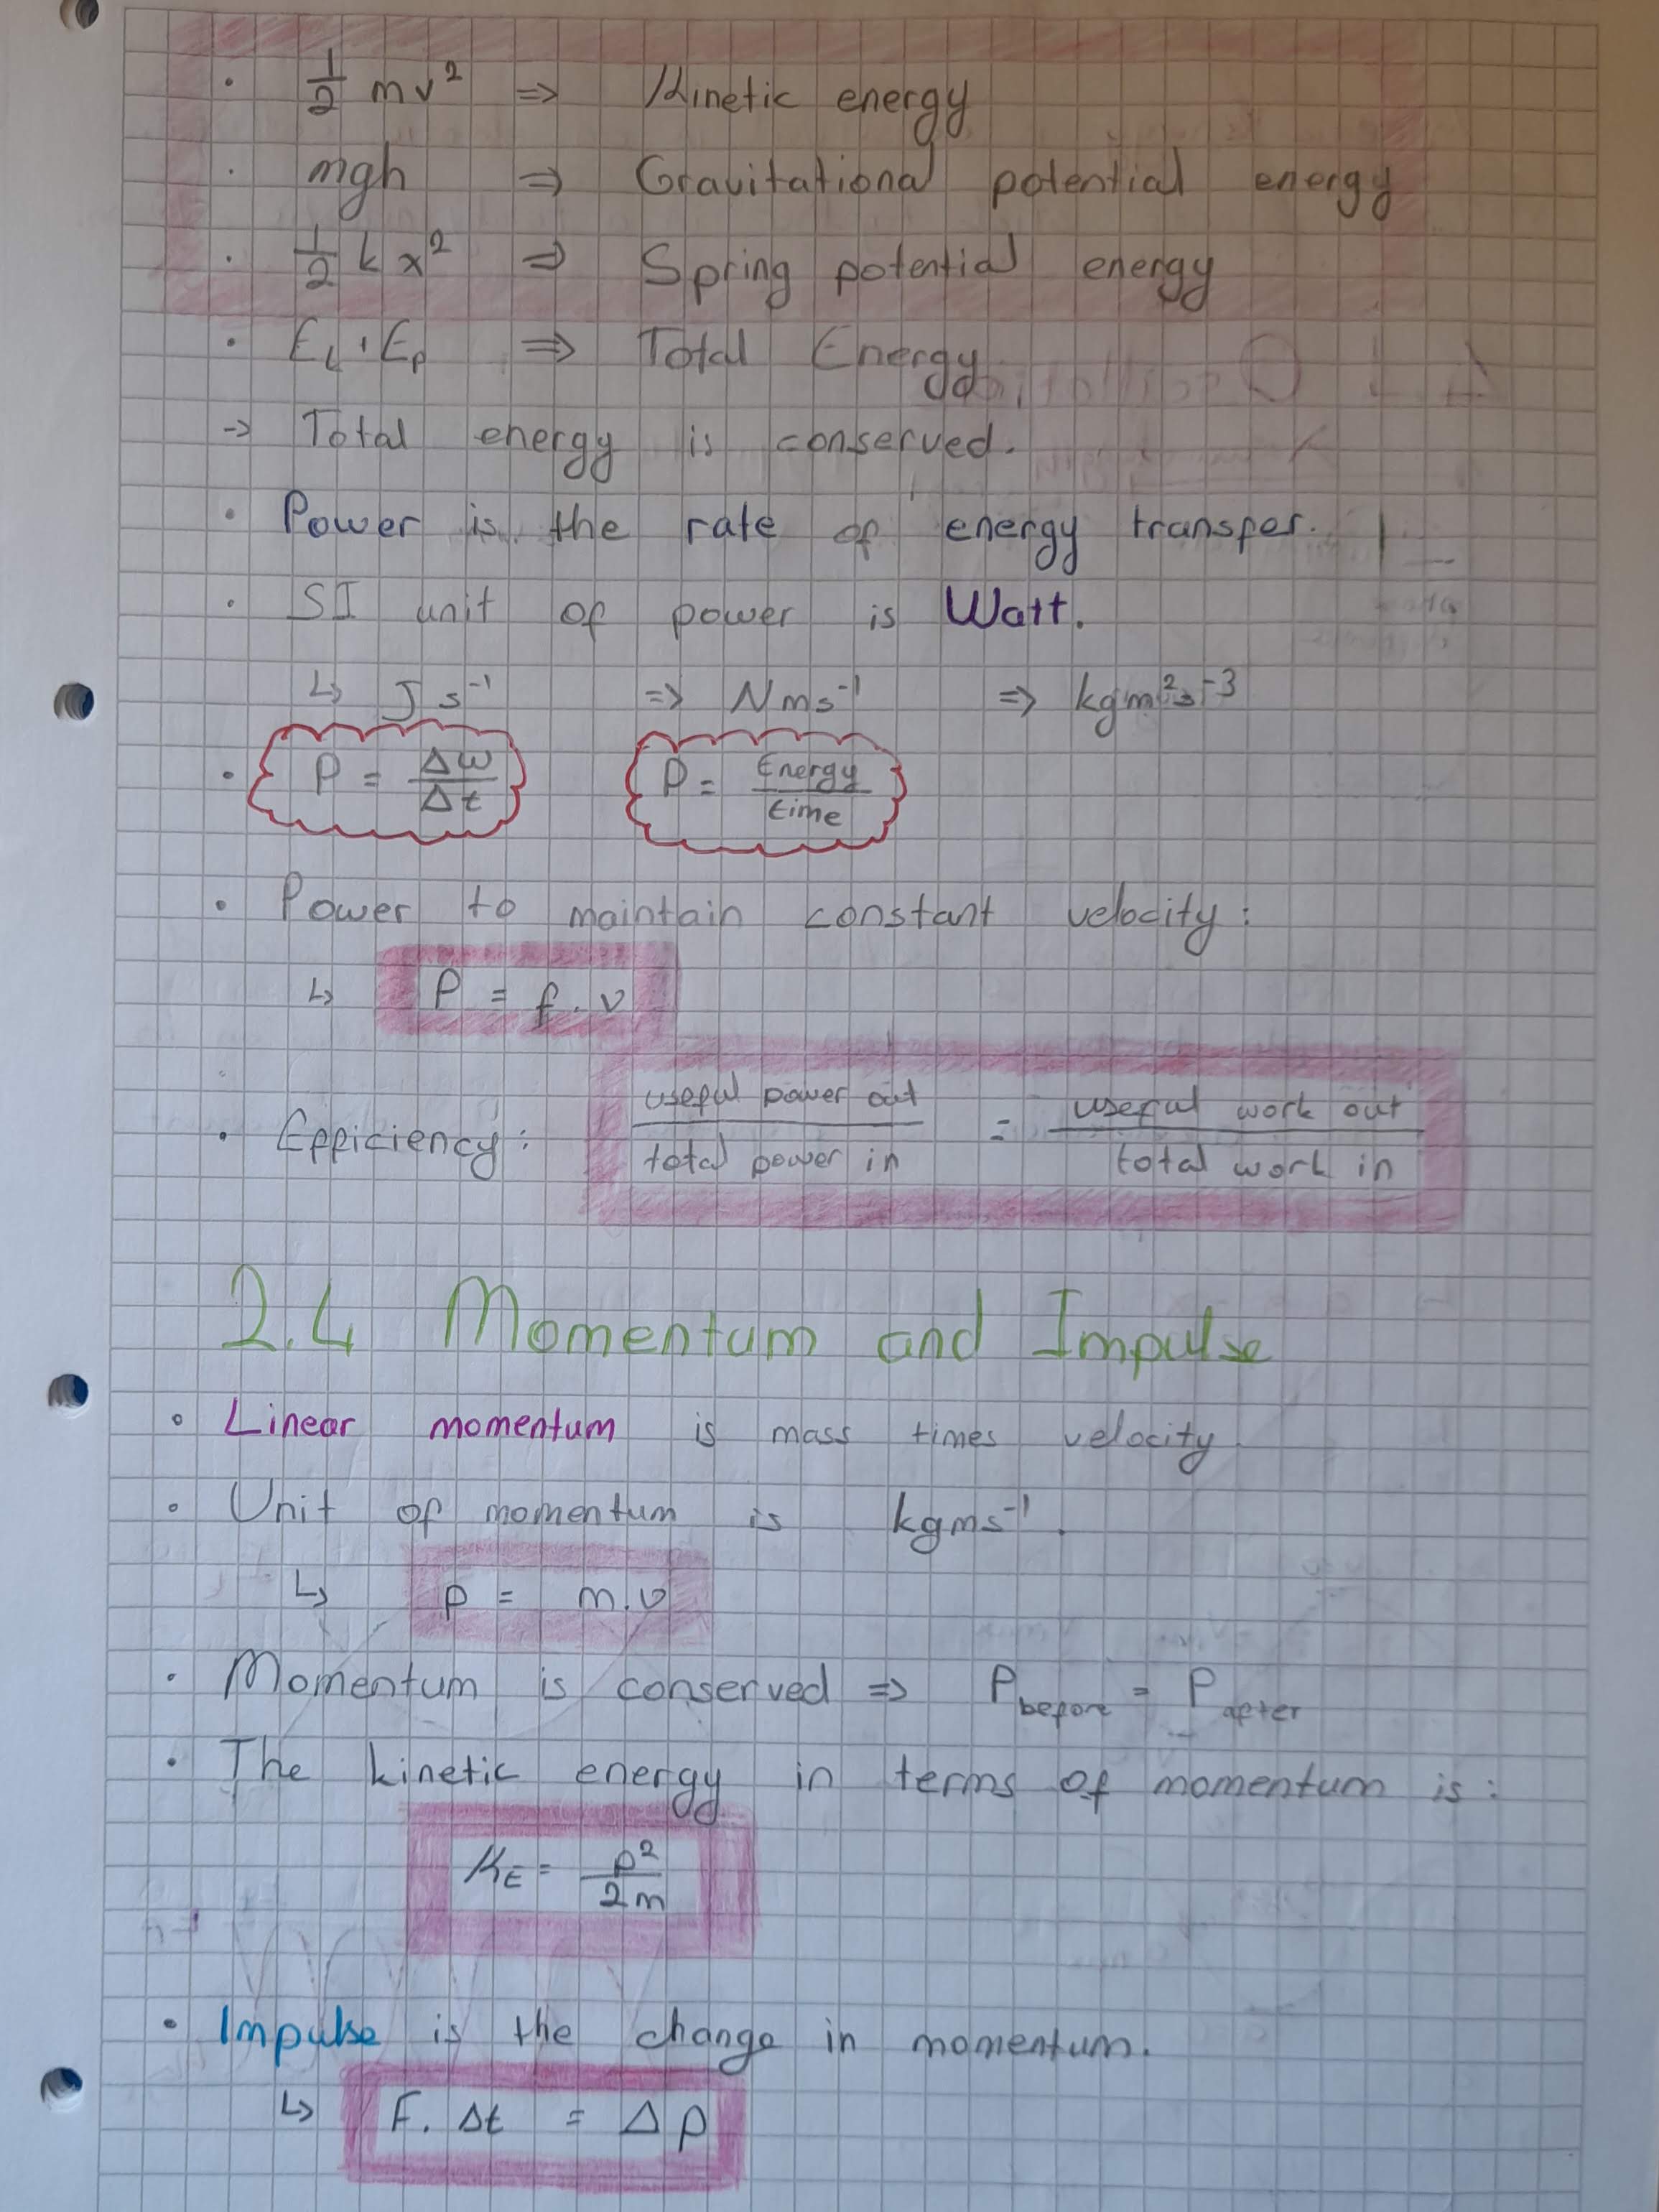 · 1/2 mv² => Kinetic energy
· mgh => Gravitational potential energy
· 1/2 kx² => Spring potential energy
· Ek + Ep => Total Energy
-> Total energy is conserved.
· Power is the rate of energy transfer.
· SI unit of power is Watt.
↳ J s⁻¹ => Nms⁻¹ => kgm²s⁻³
· P = ΔW/Δt P = Energy/time
· Power to maintain constant velocity:
↳ P = f.v
· Efficiency: useful power out/total power in = useful work out/total work in
2.4 Momentum and Impulse
· Linear momentum is mass times velocity
· Unit of momentum is kgms⁻¹.
↳ p = m.v
· Momentum is conserved => P before = P after
· The kinetic energy in terms of momentum is:
KE = p²/2m
· Impulse is the change in momentum.
↳ F. Δt = Δp